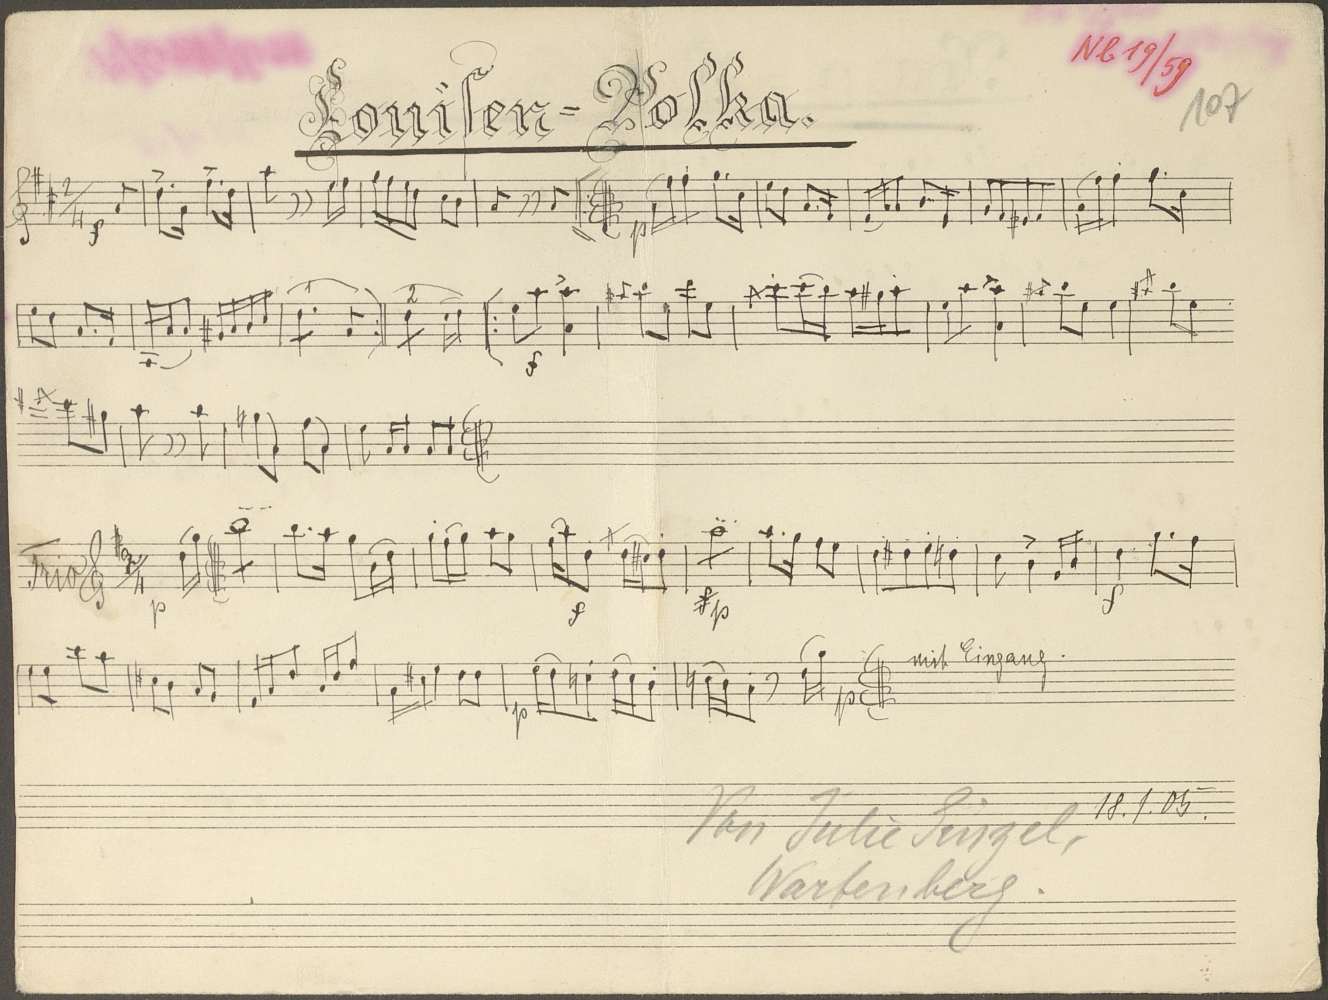 Nb 19/59
107
Louisen-Polka.
2/4 f
p
1 2
f
Trio 2/4 p
f
p
f
p
p
mit Eingang.
Von Julie Singel, 18.1.05.
Wartenberg.